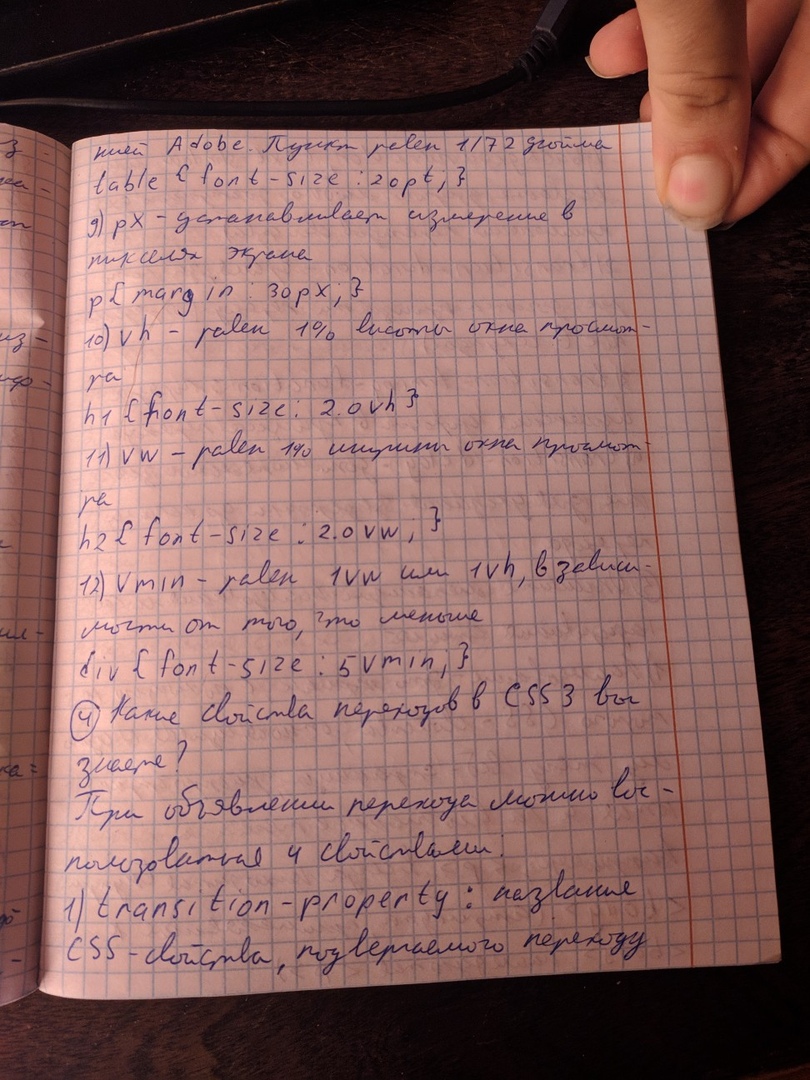 нией Adobe. Пункт равен 1/72 дюйма
table { font-size : 20pt; }
9) px - устанавливает измерение в
пикселях экрана
p { margin : 30px; }
10) vh - равен 1% высоты окна просмот-
ра
h1 { font-size: 2.0vh }
11) vw - равен 1% ширины окна просмот-
ра
h2 { font-size : 2.0vw; }
12) vmin - равен 1vw или 1vh, в зависи-
мости от того, что меньше
div { font-size : 5vmin; }
4 Какие свойства переходов в CSS3 вы
знаете?
При объявлении перехода можно вос-
пользоваться 4 свойствами:
1) transition-property : название
CSS-свойства, подвергаемого переходу